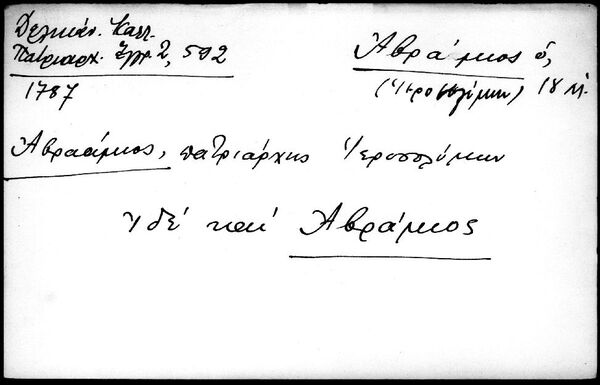 Δελικάν. Καλλ.
Πατριαρχ. Ἔγγρ. 2, 592
1787
Ἀβράμιος ὁ,
(Ἱεροσολύμων) 18 αἰ.
Ἀβραάμιος, πατριάρχης Ἱεροσολύμων
ἰδέ καί Ἀβράμιος